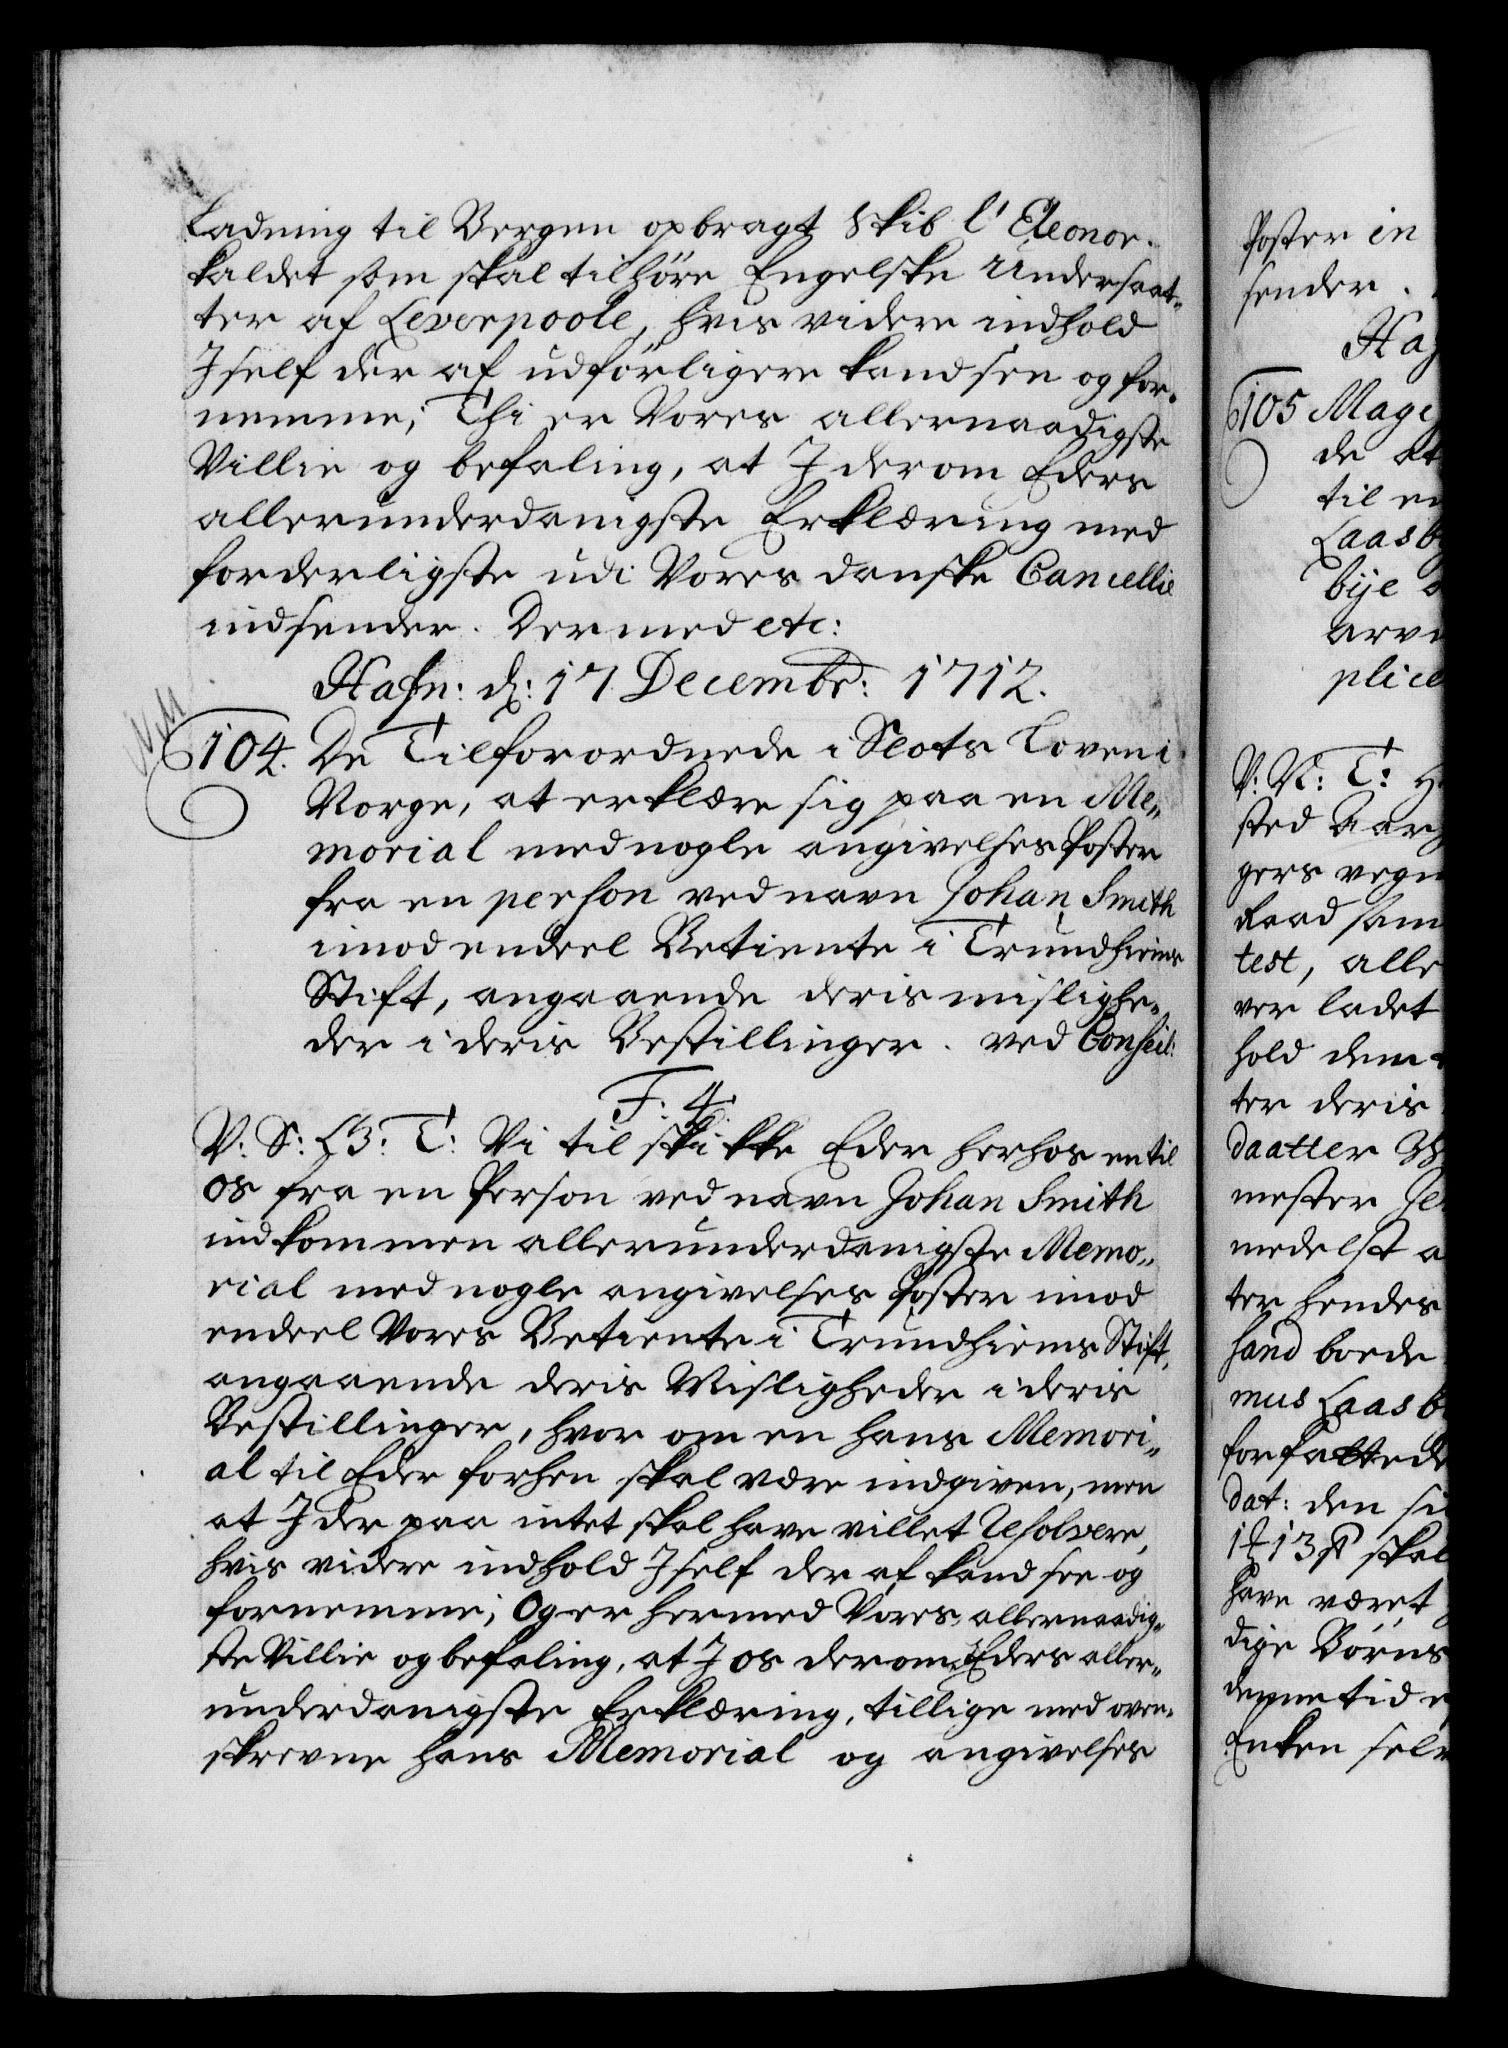 Ladning til Bergen opbragt Skib l'Eleonor
kaldet som skal tilhöre Engelske Undersaat„
ter af Leverpoole, hvis videre indhold
I self der af udförligere kand see og for„
nemme; Thi er Vores allernaadigste
Villie og befaling, at I derom Eders
allerunderdanigste Erklæring med
forderligste udi Vores danske Cancellie
indsender. Dermed etc:
Hafn: d: 17 Decembr: 1712.
104. De Tilforordnede i Slots Loven i
Norge, at erklære sig paa en Me„
morial med nogle angivelses Poster
fra en person ved navn Johan Smith
imod endeel Betiente i Trundhiems
Stift, angaaende deris mislighe„
der i deris Bestillinger. ved Conseil:
F. 4.
V: S: G: T: Vi tilskikke Eder herhos en til
os fra en Person ved navn Johan Smith
indkommen allerunderdanigste Memo„
rial med nogle angivelses Poster imod
endeel Vores Betiente i Trundhiems Stift,
angaaende deris Misligheder i deris
Bestillinger, hvor om en hans Memori„
al til Eder forhen skal være indgiven, men
at I der paa intet skal have villet resolvere,
hvis videre indhold I self der af kand see og
fornemme; Og er hermed Vores allernaadig„
ste Villie og befaling, at I os derom Eders aller„
underdanigste Erklæring, tillige med oven„
skrevne hans Memorial og angivelses
Poster in
sender.
105 Mag
de
til
Laasb
bye
arv
plice
V: N: T:
sted
gers vegn
Raad sam
test, alle
ver ladet
hold dem
ter deris
daatter
mester Je
medelst a
ter hendes
hand boede
mus Laasb
forfattede
dat: den
skal
have været
dige Börns
denne tid
Enken selv